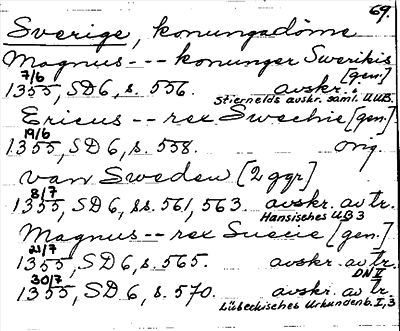 69.
Sverige, konungadöme
Magnus --- konunger Swerikis
7/6 [gen.]
1355, SD 6, s. 556. avskr. i
Stiernelds avskr. saml. UUB.
Ericus -- rex Swechie [gen.]
19/6
1355, SD 6, s. 558. orig.
van Sweden [2 ggr]
8/7
1355, SD 6, ss. 561, 563. avskr. av tr.
Hansisches UB 3
Magnus -- rex Suecie [gen.]
21/7
1355, SD 6, s. 565. avskr. av tr.
DN II
30/7
1355, SD 6, s. 570. avskr. av tr.
Lübeckisches Urkundenb. I, 3